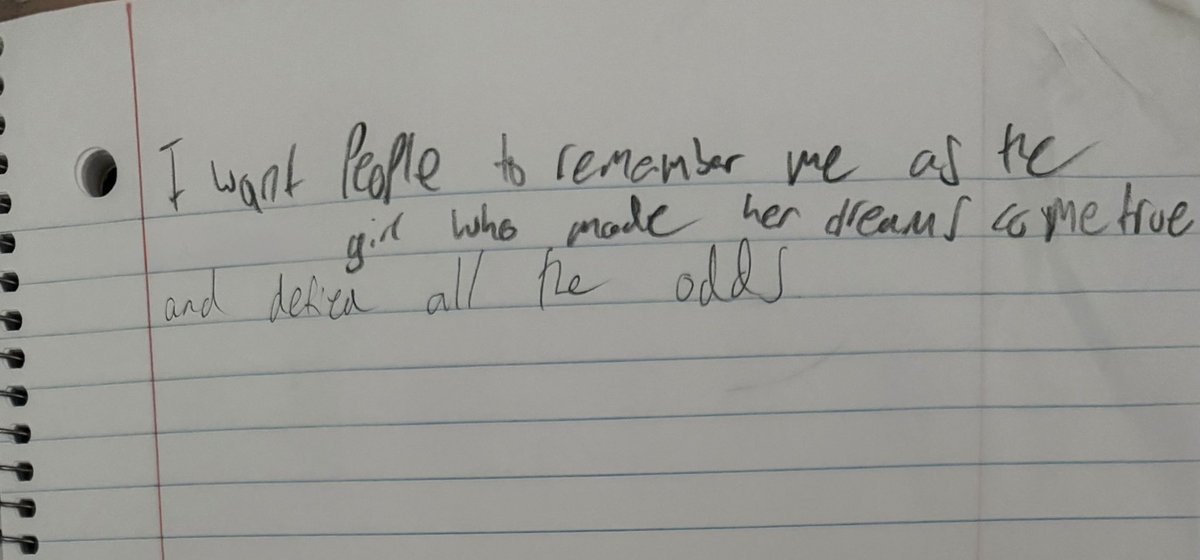 I want People to remember me as the
girl who made her dreams come true
and defied all the odds